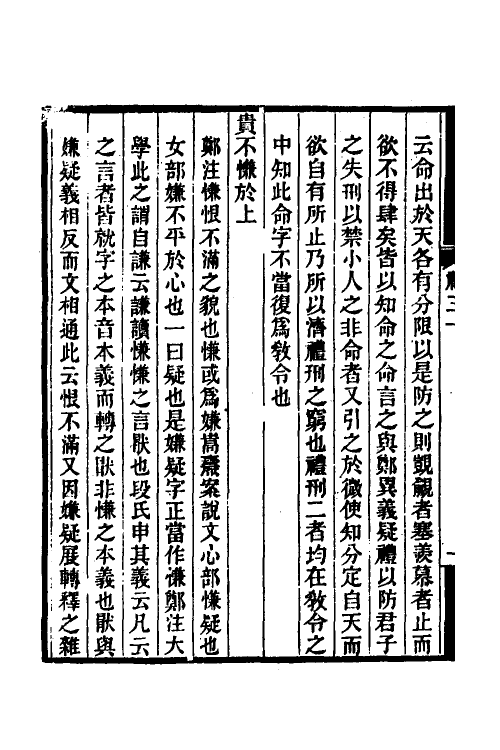 云命出於天各有分限以是防之則覬覦者塞羨慕者止而
欲不得肆矣皆以知命之命言之與鄭異義疑禮以防君子
之失刑以禁小人之非命者又引之於微使知分定自天而
欲自有所止乃所以濟禮刑之窮也禮刑二者均在敎令之
中知此命字不當復爲敎令也
貴不慊於上
鄭注慊恨不滿之貌也慊或爲嫌嵩燾案說文心部慊疑也
女部嫌不平於心也一曰疑也是嫌疑字正當作慊鄭注大
學此之謂自謙云謙讀慊慊之言厭也段氏申其義云凡云
之言者皆就字之本音本義而轉之厭非慊之本義也厭與
嫌疑義相反而文相通此云恨不滿又因嫌疑展轉釋之雜